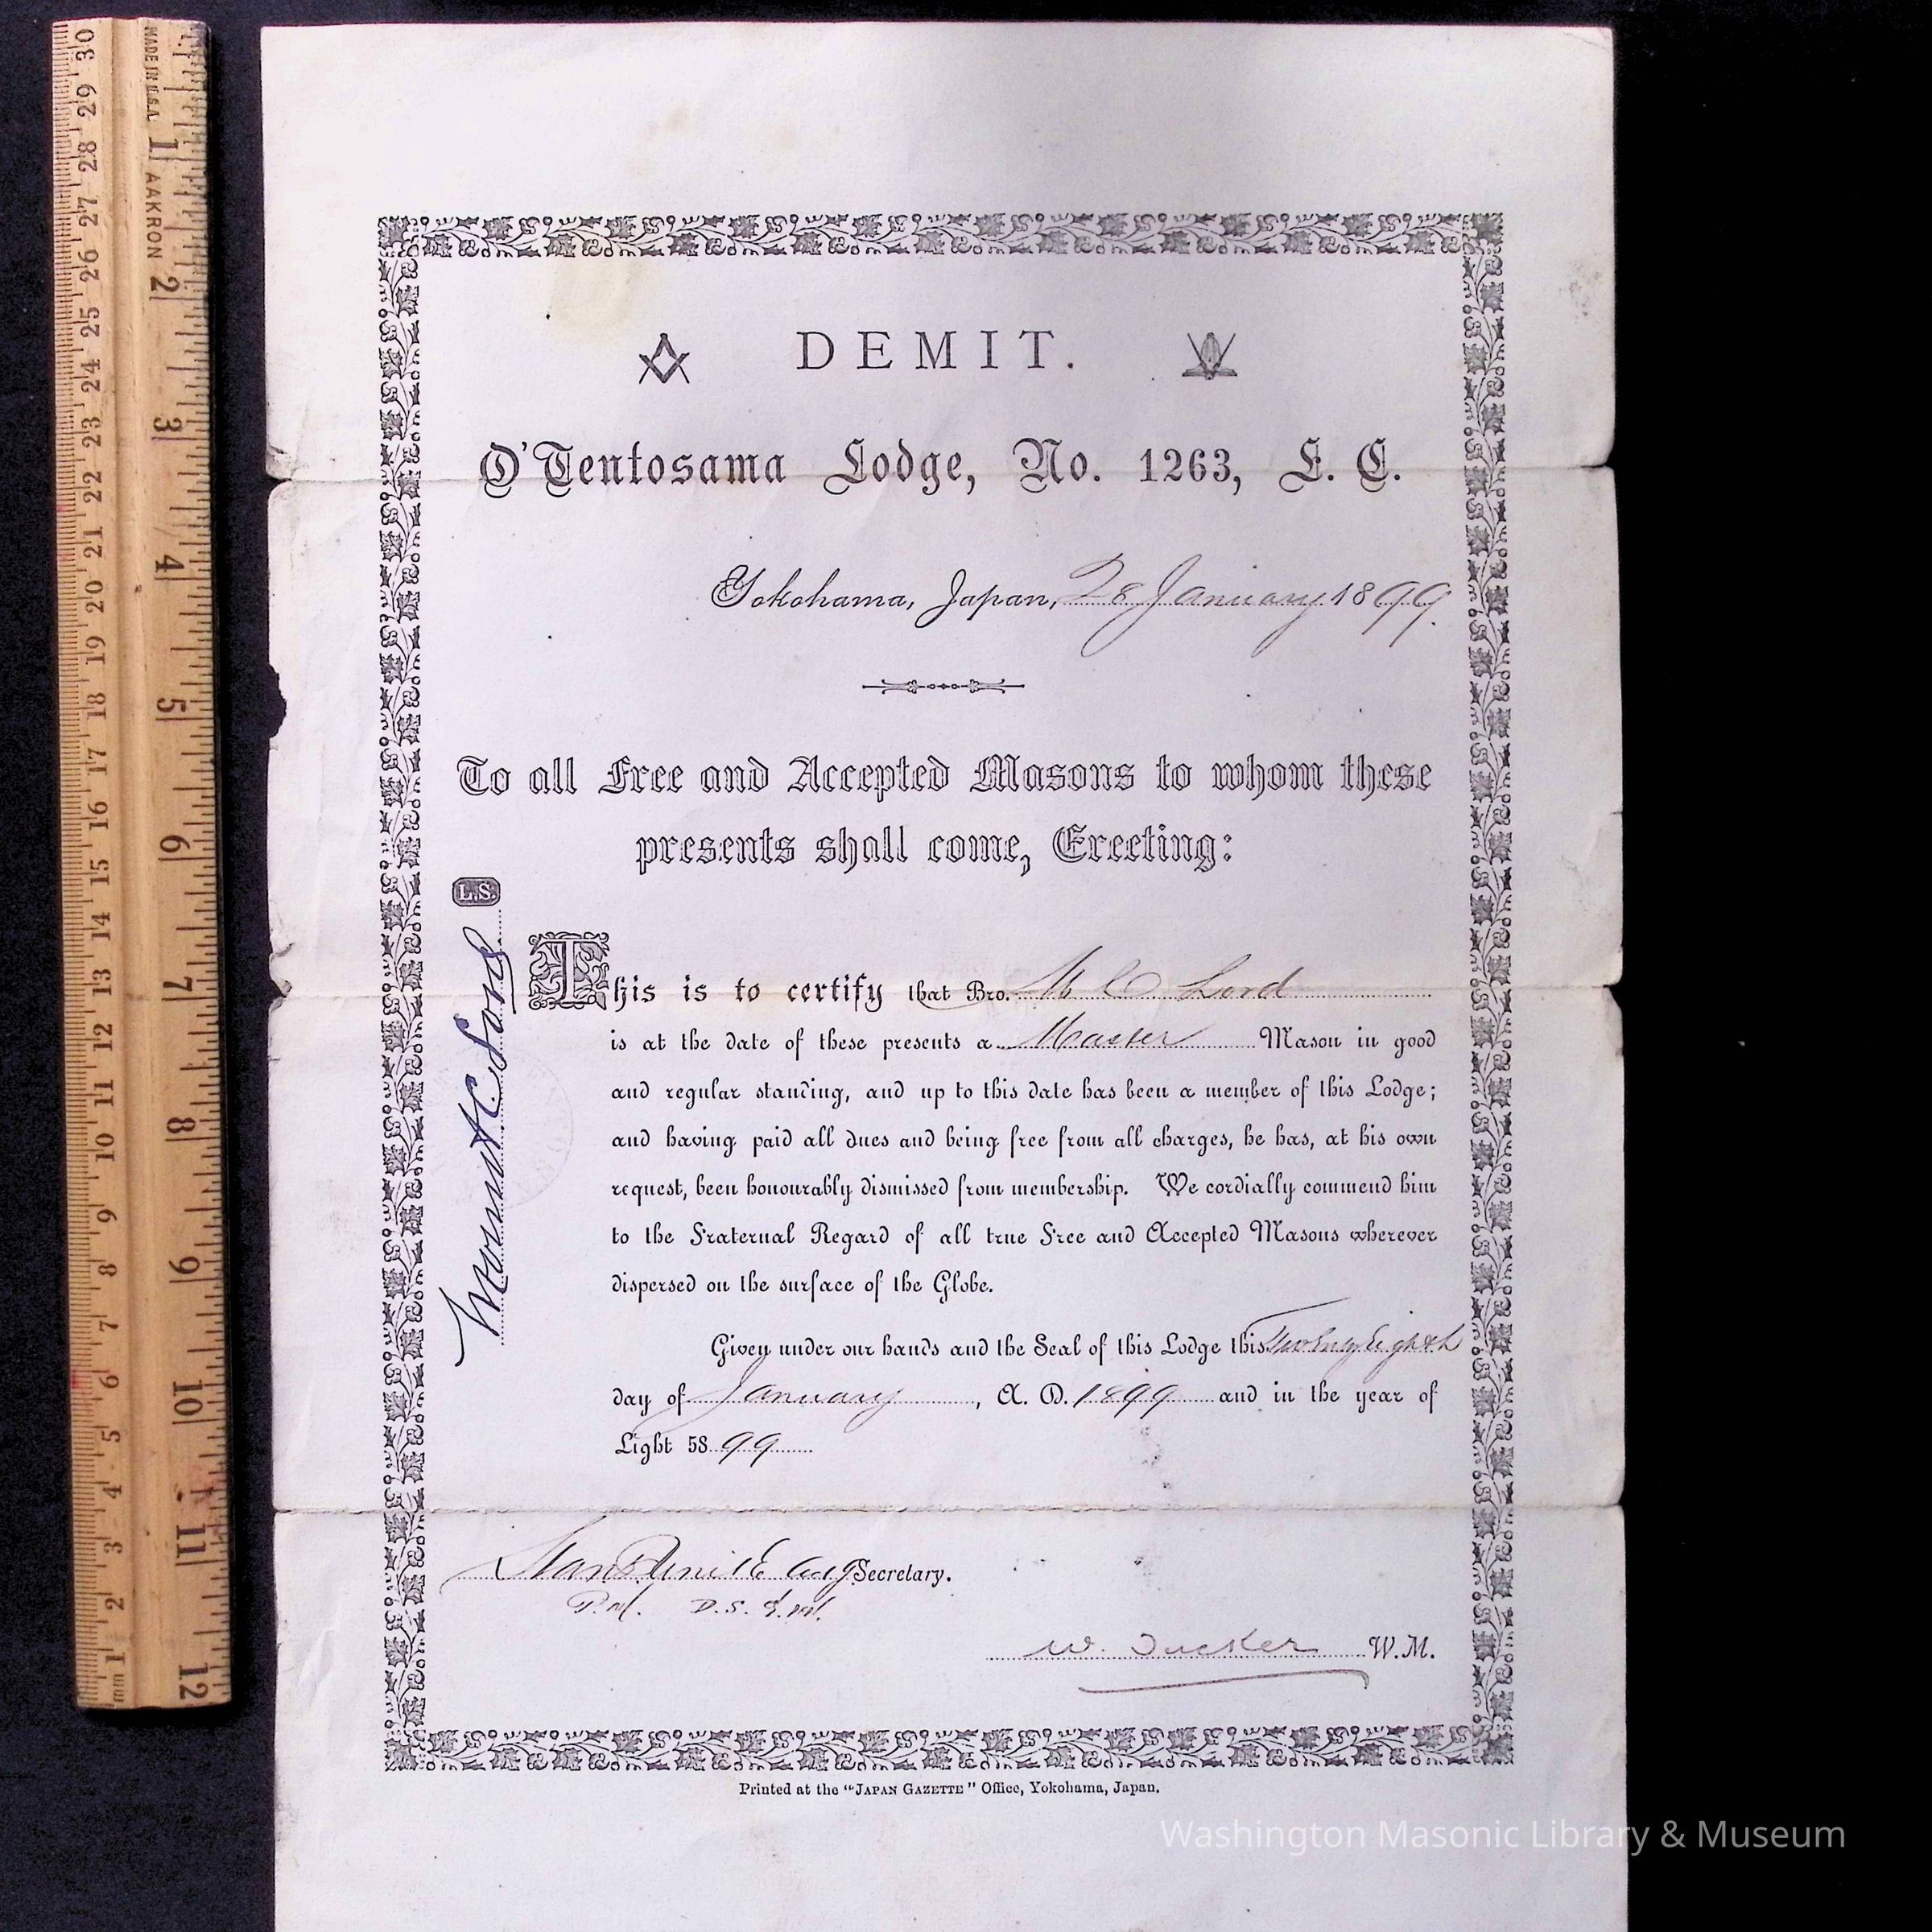 DEMIT.
O'Tentosama Lodge, No. 1263, E. C.
Yokohama, Japan, 28 January 1899.
To all Free and Accepted Masons to whom these
presents shall come, Greeting:
L.S.
This is to certify that Bro. M C Lord
is at the date of these presents a Master Mason in good
and regular standing, and up to this date has been a member of this Lodge;
and having paid all dues and being free from all charges, he has, at his own
request, been honourably dismissed from membership. We cordially commend him
to the Fraternal Regard of all true Free and Accepted Masons wherever
dispersed on the surface of the Globe.
Given under our hands and the Seal of this Lodge this Twenty Eighth
day of January, A. D. 1899 and in the year of
Light 5899
C. Lord
Secretary.
P.M. D.S. G.M.
W. Tucker W.M.
Printed at the "JAPAN GAZETTE" Office, Yokohama, Japan.
Washington Masonic Library & Museum
MADE IN U.S.A.
AAKRON
1 2 3 4 5 6 7 8 9 10 11 12
30 29 28 27 26 25 24 23 22 21 20 19 18 17 16 15 14 13 12 11 10 9 8 7 6 5 4 3 2 1 mm